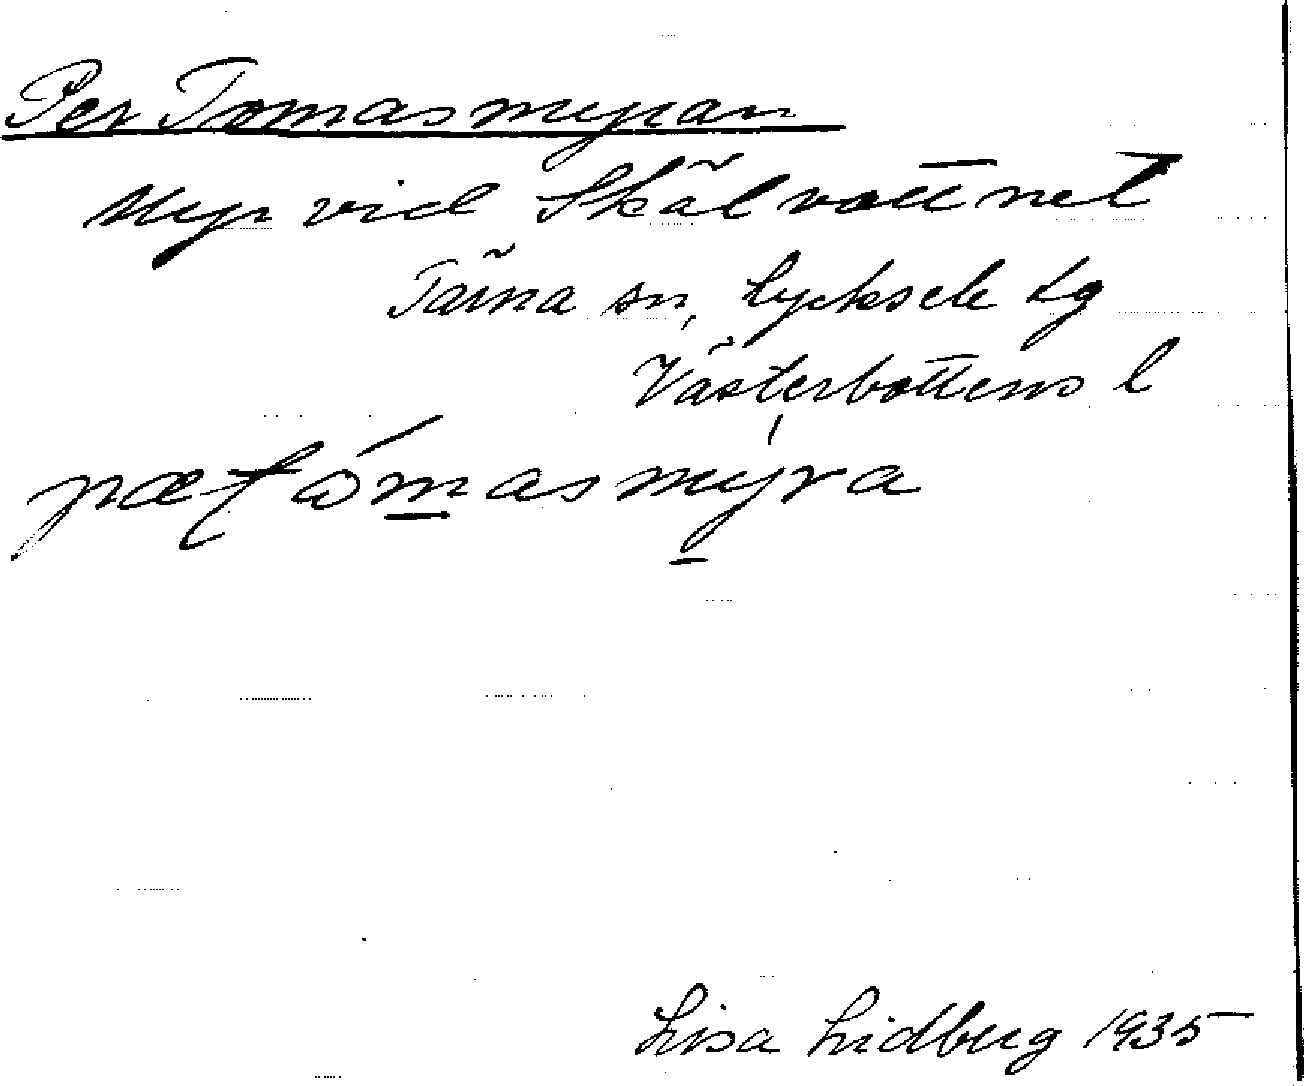 Per Tomasmyran
Myr vid Skälvattnet
Tärna sn, Lycksele lg
Västerbottens l
pætómasmýra
Lisa Lidberg 1935